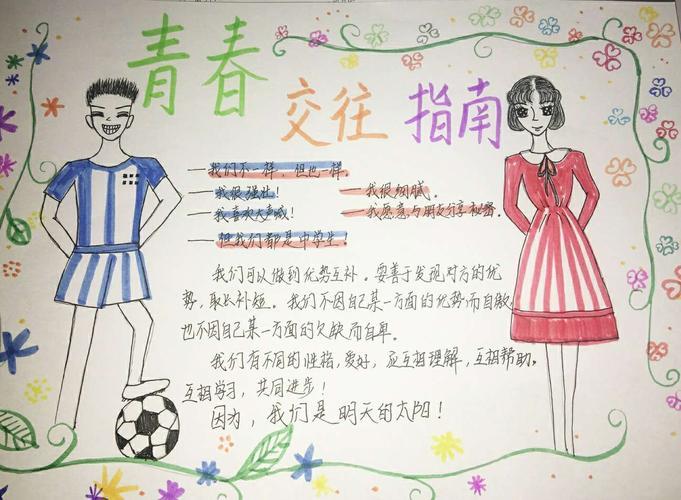 青春
交往 指南
—我们不一样，但也一样。
—我很强壮！ —我很细腻。
—我喜欢大声喊！ —我愿意与朋友分享秘密。
—但我们都是中学生。
我们可以做到优势互补。要善于发现对方的优
势，取长补短。我们不因自己某一方面的优势而自傲，
也不因自己某一方面的欠缺而自卑。
我们有不同的性格，爱好，应互相理解，互相帮助，
互相学习，共同进步！
因为，我们是明天的太阳！